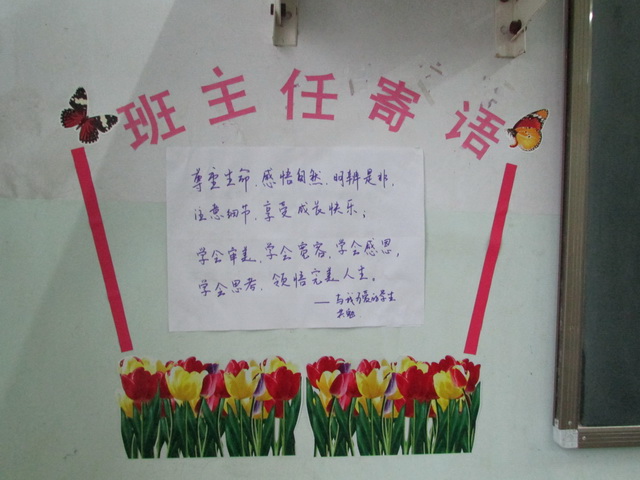 班主任寄语
尊重生命,感悟自然,明辨是非,
注意细节,享受成长快乐;
学会审美,学会宽容,学会感恩,
学会思考,领悟完美人生。
——与我可爱的学生
共勉